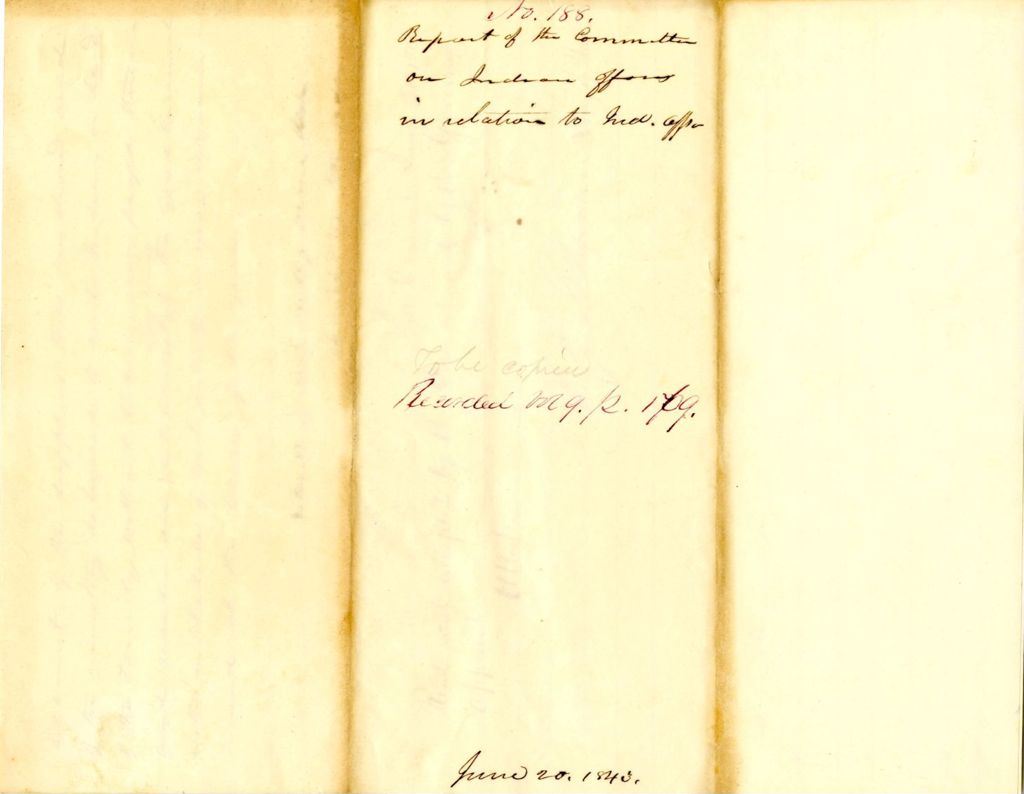 No. 188.
Report of the Committee
on Indian Affairs
in relation to Ind. Affrs
To be copied
Recorded Vol 9. p. 179.
June 20. 1843.